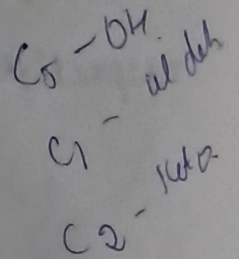 C5 - OH.
C1 - aldeh
C2 - keto